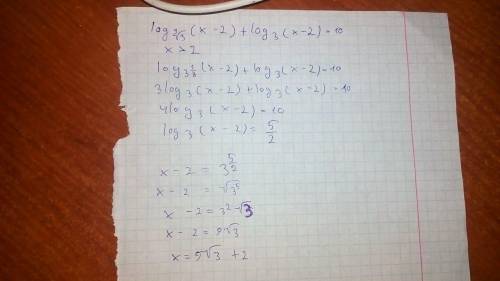 log_∛3 (x-2) + log_3 (x-2) = 10
x > 2
log_3^(1/3) (x-2) + log_3 (x-2) = 10
3log_3 (x-2) + log_3 (x-2) = 10
4log_3 (x-2) = 10
log_3 (x-2) = 5/2
x-2 = 3^(5/2)
x-2 = √3^5
x-2 = 3^2·√3
x-2 = 9√3
x = 5√3 + 2